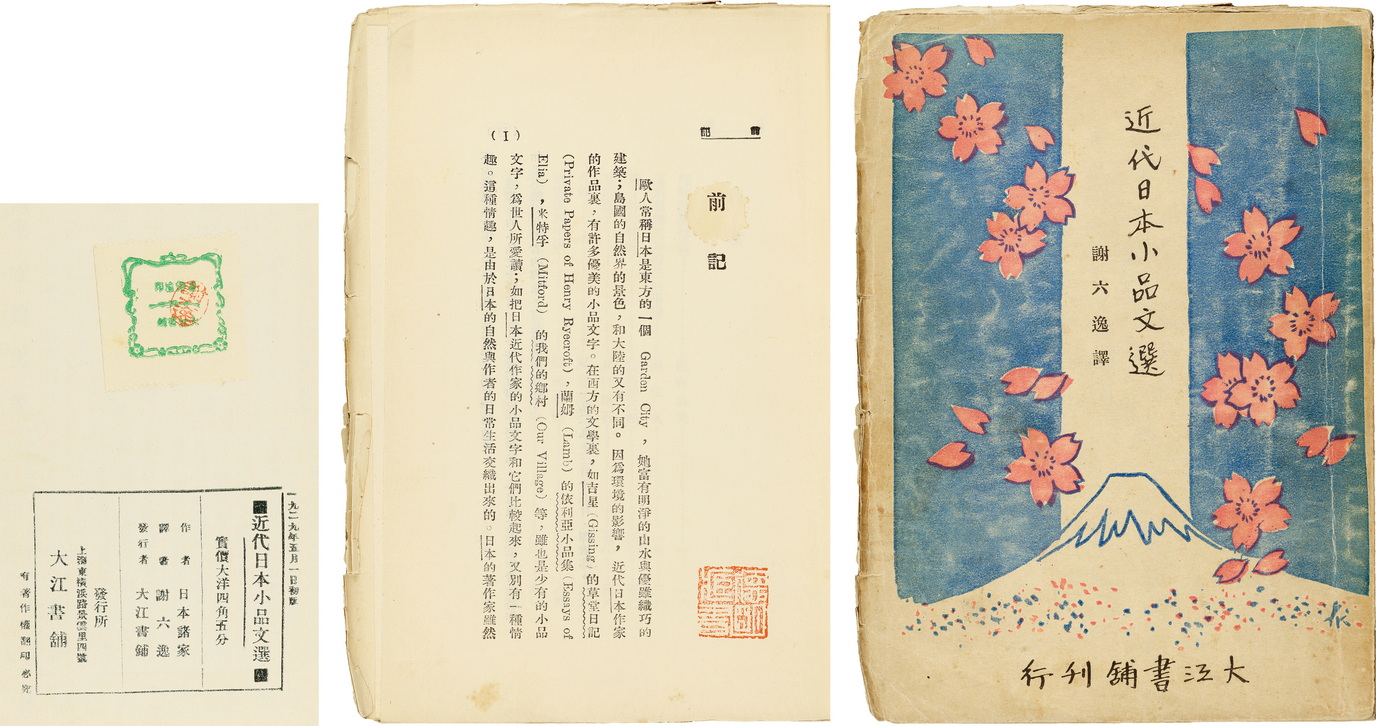 近代日本小品文選
謝六逸譯
大江書鋪刊行
前記
前記
歐人常稱日本是東方的一個 Garden City，她富有明淨的山水與優雖纖巧的
建築；島國的自然界的景色，和大陸的又有不同。因爲環境的影響，近代日本作家
的作品裏，有許多優美的小品文字。在西方的文學裏，如吉星（Gissing）的草堂日記
（Private Papers of Henry Ryecroft），蘭姆（Lamb）的依利亞小品集（Essays of
Elia），米特孚（Mitford）的我們的鄉村（Our Village）等，雖也是少有的小品
文字，爲世人所愛讀；如把日本近代作家的小品文字和它們比較起來，又別有一種情
趣。這種情趣，是由於日本的自然與作者的日常生活交織出來的。日本的著作家雖然
(I)
一九二九年五月一日初版
近代日本小品文選
實價大洋四角五分
作者 日本諸家
譯者 謝六逸
發行者 大江書鋪
發行所
上海東橫浜路景雲里四號
大江書鋪
有著作權翻印必究